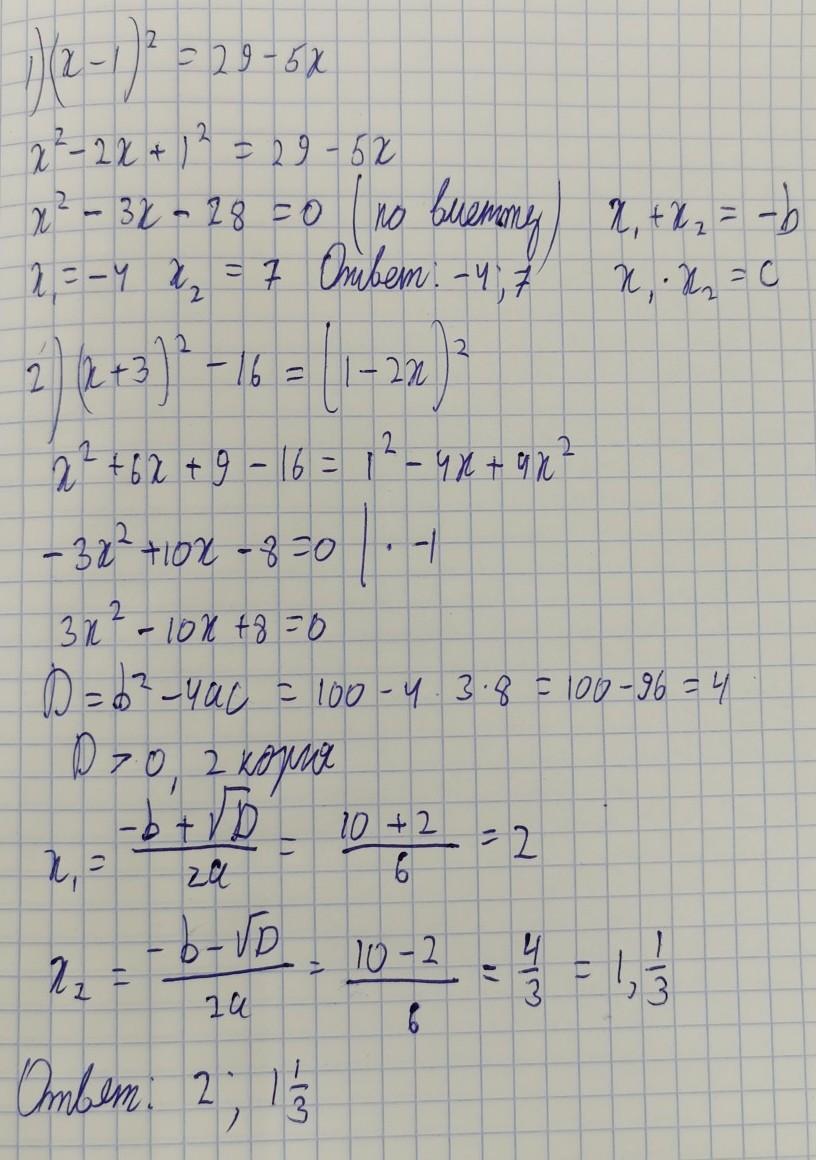 1) (x-1)² = 29-5x
x² - 2x + 1² = 29 - 5x
x² - 3x - 28 = 0 (по виетту) x₁ + x₂ = -b
x₁ = -4 x₂ = 7 Ответ: -4; 7 x₁ · x₂ = c
2) (x+3)² - 16 = (1-2x)²
x² + 6x + 9 - 16 = 1² - 4x + 4x²
-3x² + 10x - 8 = 0 | · -1
3x² - 10x + 8 = 0
D = b² - 4ac = 100 - 4 · 3 · 8 = 100 - 96 = 4
D > 0, 2 корня
x₁ = (-b + √D)/2a = (10 + 2)/6 = 2
x₂ = (-b - √D)/2a = (10 - 2)/6 = 4/3 = 1, 1/3
Ответ: 2; 1 1/3